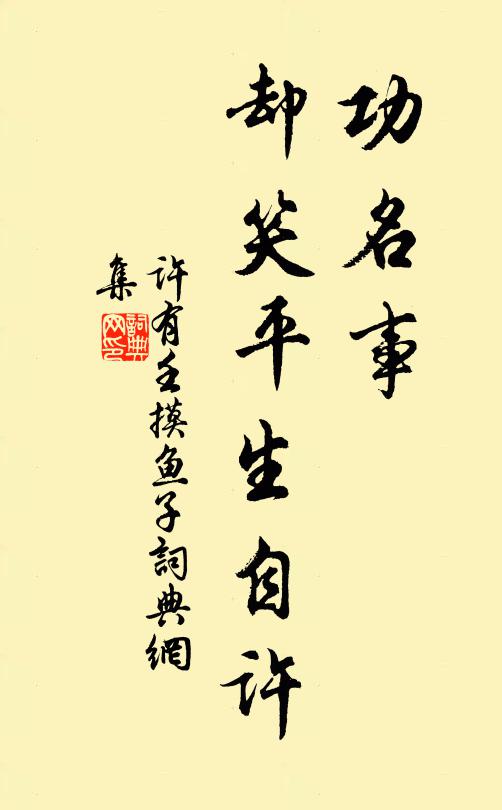 功名事
却笑平生自许
许有壬摸鱼子詞典網
集
詞典
网印